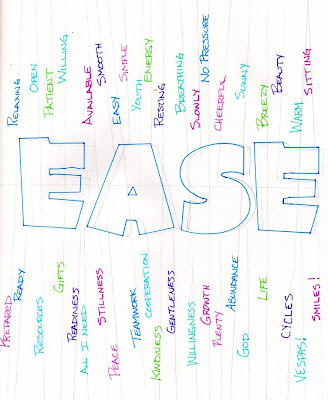 RELAXING
OPEN
PATIENT
WILLING
AVAILABLE
SMOOTH
EASY
SIMPLE
YOUTH
ENERGY
RESTING
BREATHING
SLOWLY
NO PRESSURE
CHEERFUL
SUNNY
BREEZY
BEAUTY
WARM
SITTING
EASE
PREPARED
READY
RESOURCES
GIFTS
READYNESS
ALL I NEED
STILLNESS
PEACE
TEAMWORK
COOPERATION
KINDNESS
GENTLENESS
WILLINGNESS
GROWTH
PLENTY
ABUNDANCE
GOD
LIFE
CYCLES
VESPAS!
SMILES!